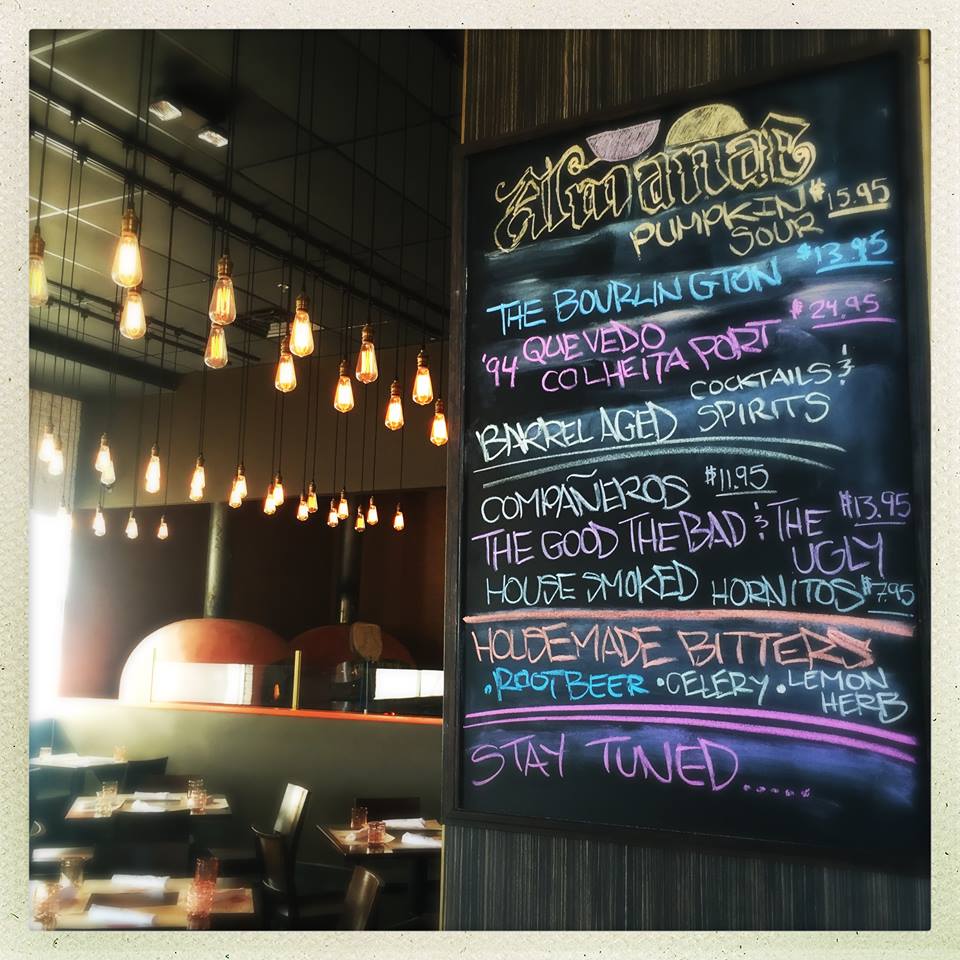 Almanac
PUMPKIN $15.95
SOUR
THE BOURLINGTON $13.95
'94 QUEVEDO $24.95
COLHEITA PORT
BARREL AGED COCKTAILS &
SPIRITS
COMPAÑEROS $11.95
THE GOOD THE BAD & THE $13.95
UGLY
HOUSE SMOKED HORNITOS $7.95
HOUSEMADE BITTERS
•ROOTBEER •CELERY •LEMON
HERB
STAY TUNED......